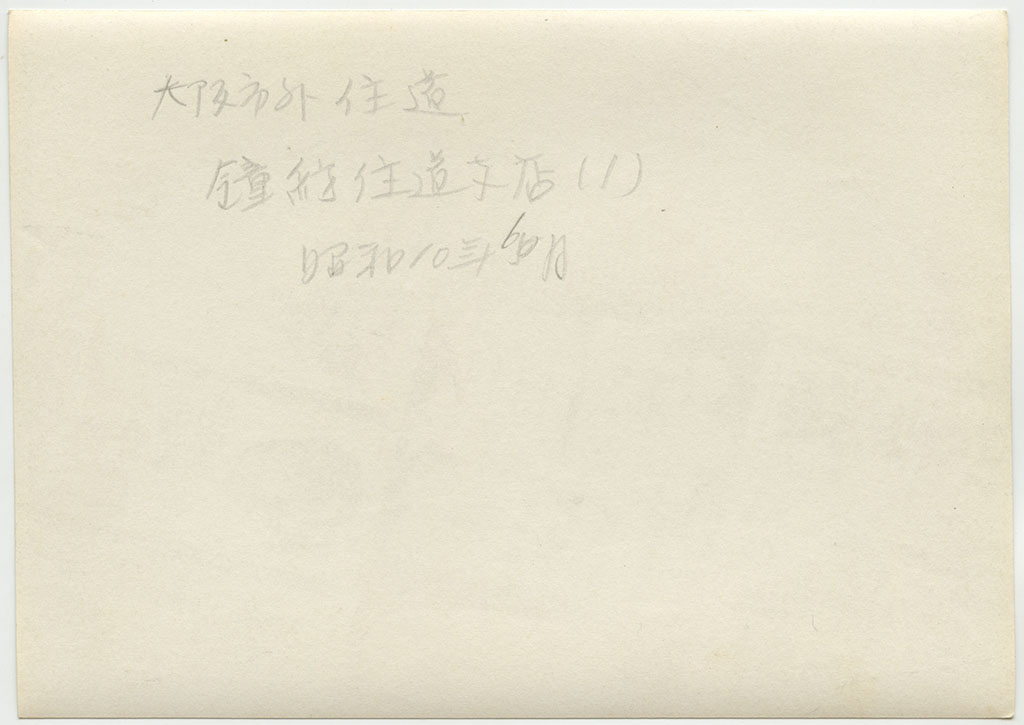 大阪市外住道
鐘紡住道支店(1)
昭和10年6月